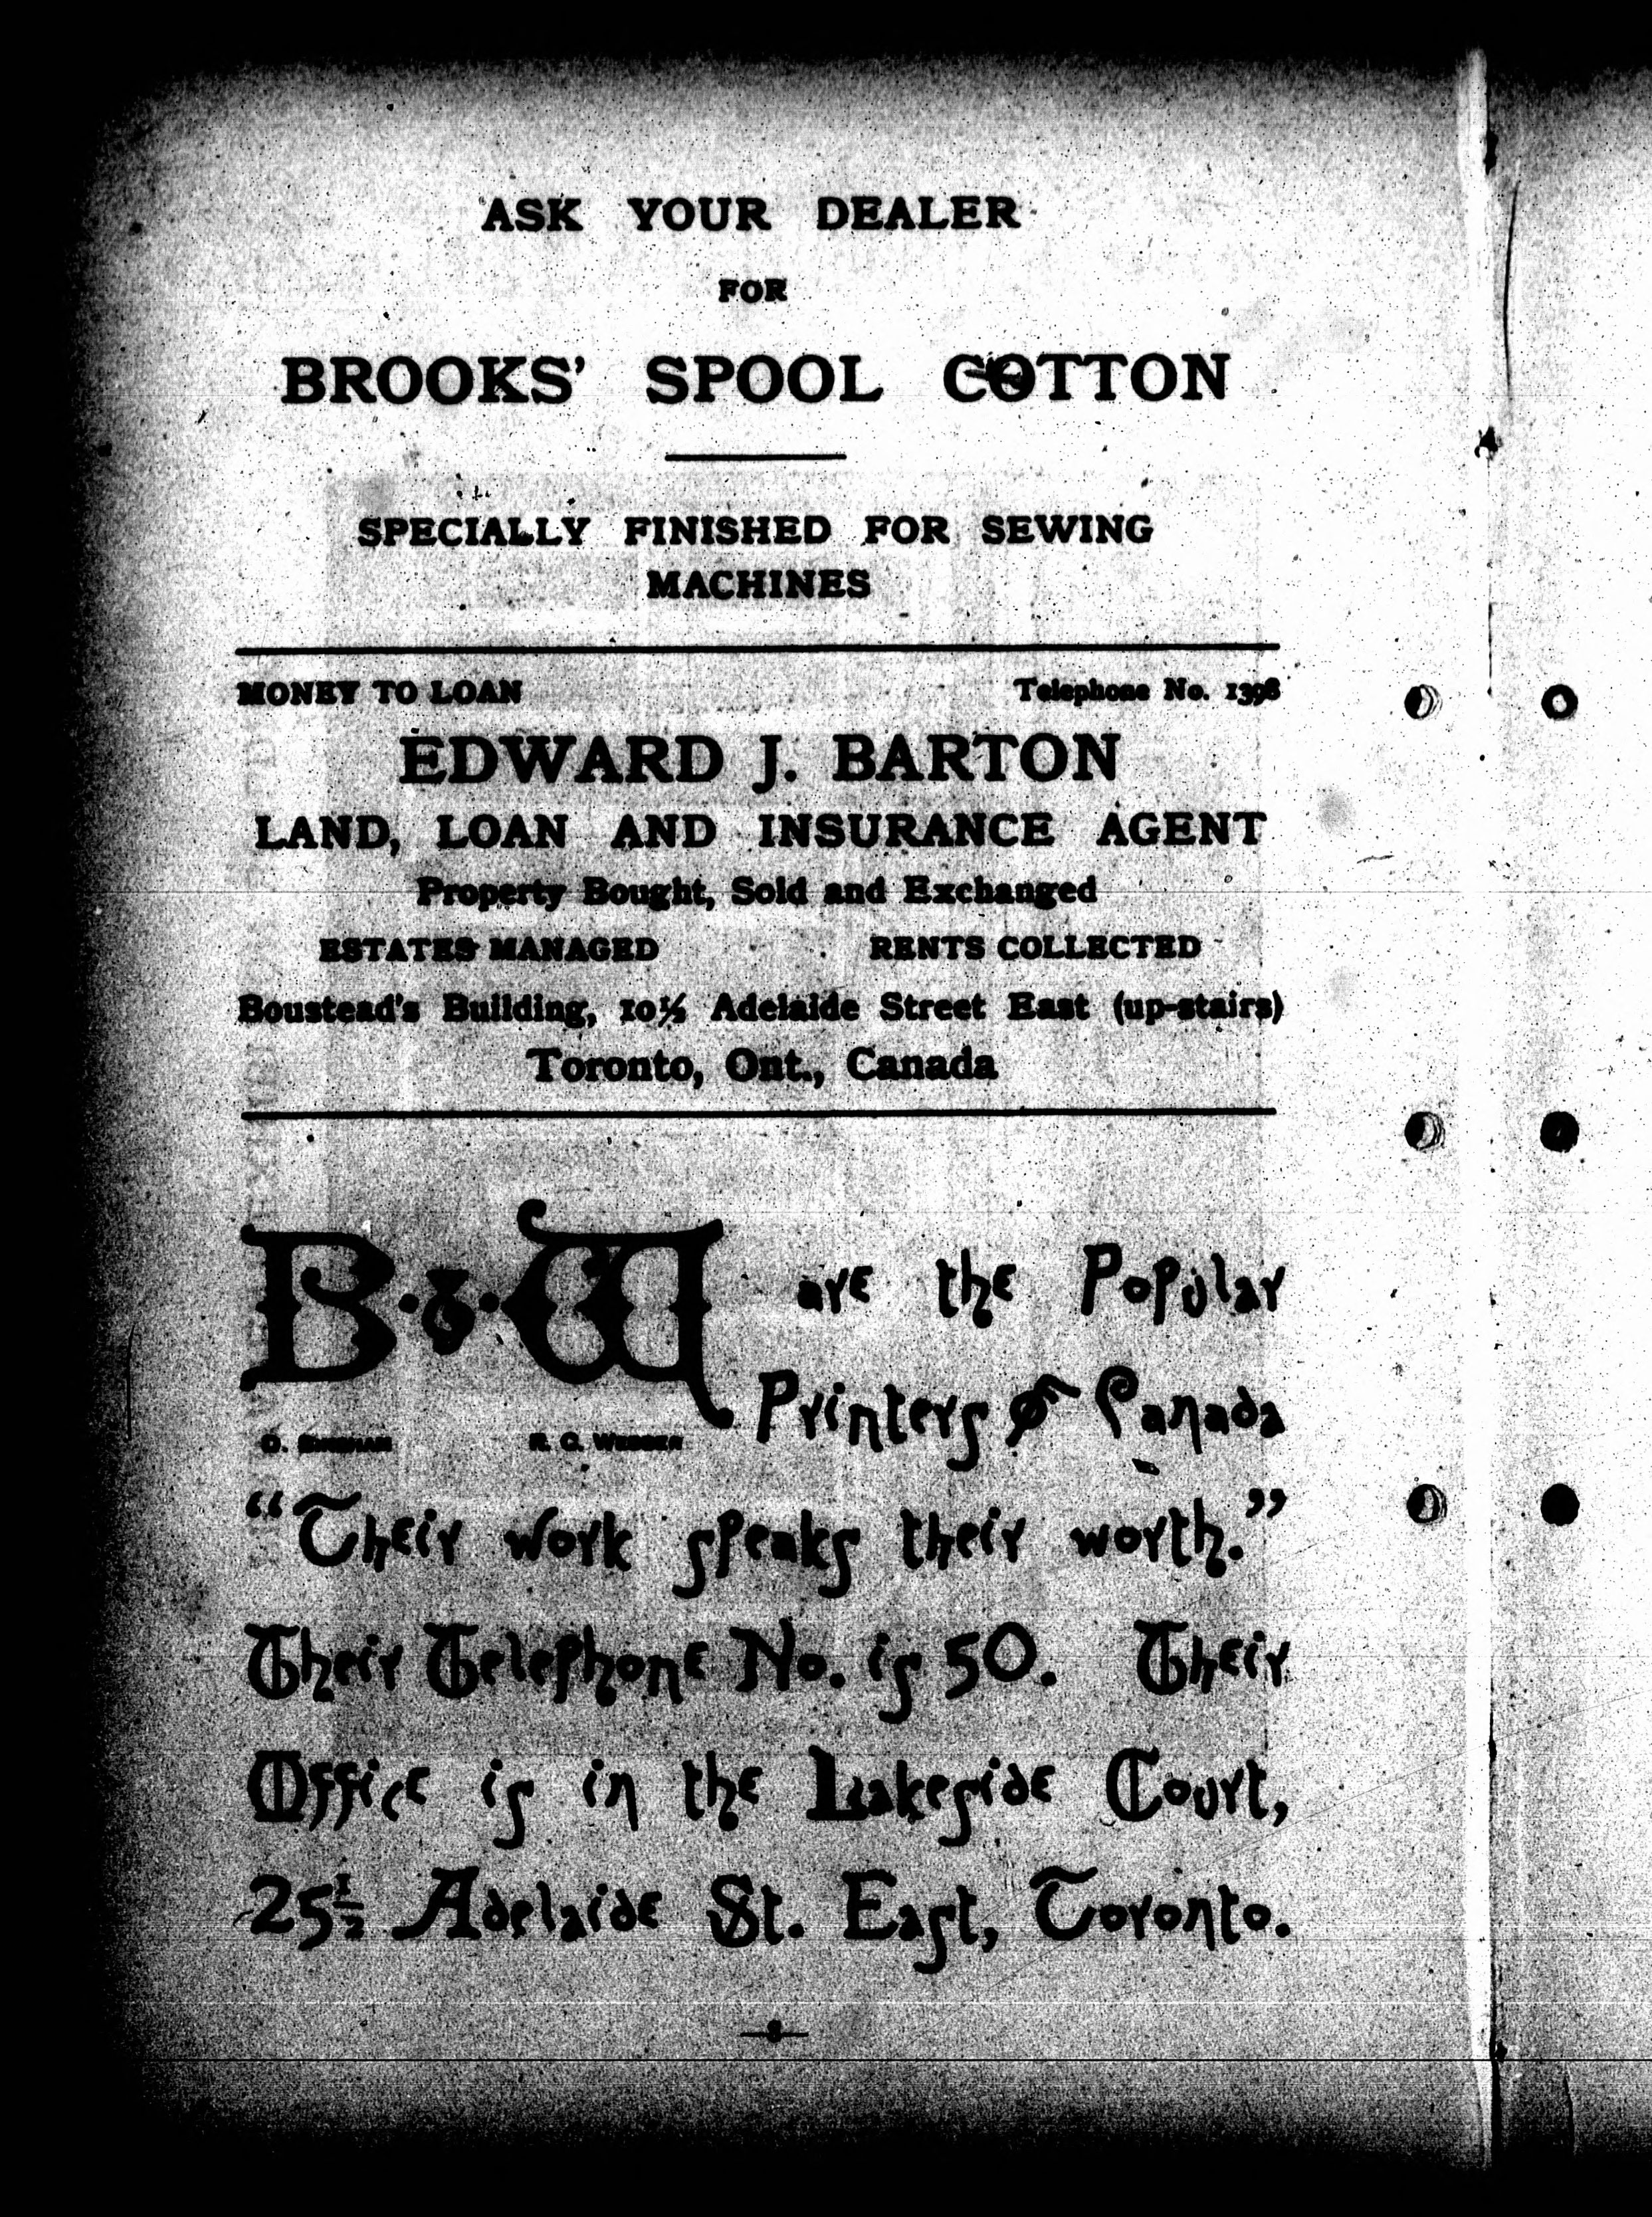 ASK YOUR DEALER
FOR
BROOKS' SPOOL COTTON
SPECIALLY FINISHED FOR SEWING
MACHINES
MONEY TO LOAN Telephone No. 1398
EDWARD J. BARTON
LAND, LOAN AND INSURANCE AGENT
Property Bought, Sold and Exchanged
ESTATES MANAGED RENTS COLLECTED
Boustead's Building, 10½ Adelaide Street East (up-stairs)
Toronto, Ont., Canada
B & W are the Popular
Printers of Canada
D. R. G. Webber
"Their work speaks their worth."
Their Telephone No. is 50. Their
Office is in the Lakeside Court,
25½ Adelaide St. East, Toronto.
—8—